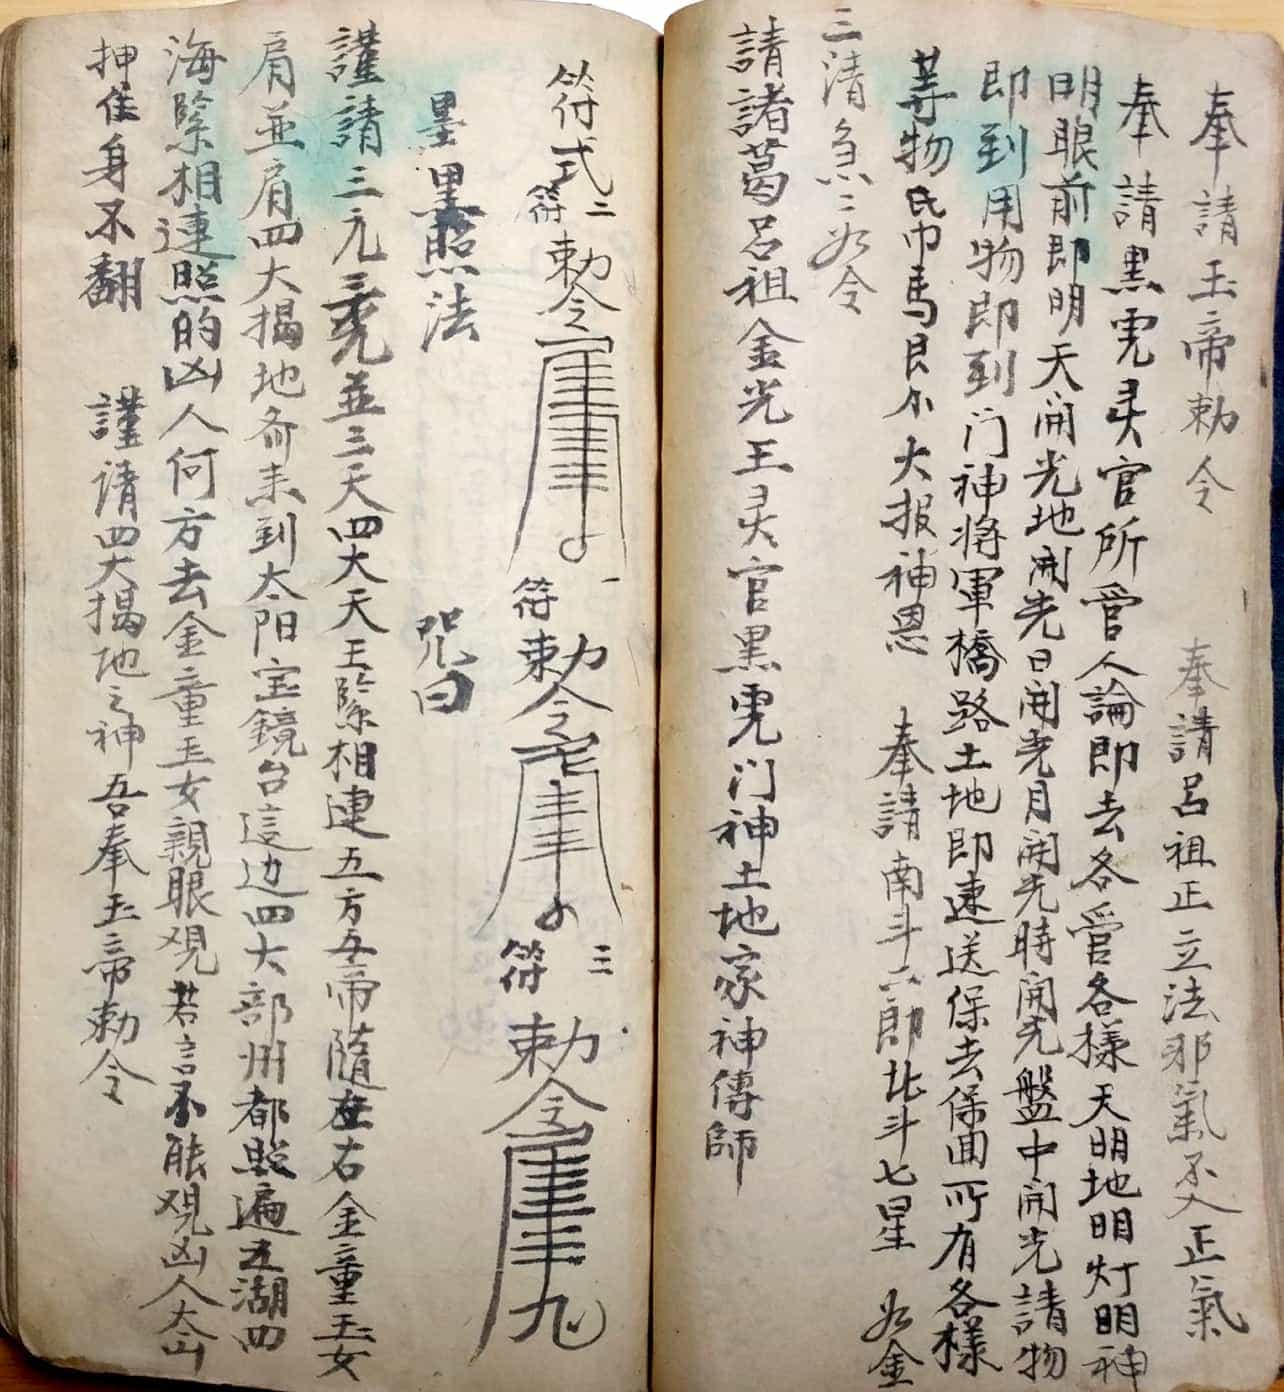 奉請玉帝勅令　奉請呂祖正立法邪氣不入正氣
奉請黑虎灵官所管人論即去各管各樣天明地明灯明神
明眼前即明天開光地開光日開光月開光時開光盤中開光請物
即到用物即到门神将軍橋路土地即速送保去保回所有各樣
等物民巾馬艮小大报神恩　奉請南斗六郎北斗七星　如金
三清急〻如令
請諸葛呂祖金光王灵官黑虎门神土地家神傳師
符式二符勅令
一符勅令
三符勅令九
墨里照法　咒曰
謹請三元三光並三天四大天王隂相連五方五帝隨左右金童玉女
肩並肩四大揭地齐来到太阳宝鏡台這边四大部州都照遍五湖四
海隂相連照的凶人何方去金童玉女親眼观若言不能观凶人大山
押住身不翻　謹请四大揭地之神吾奉玉帝勅令